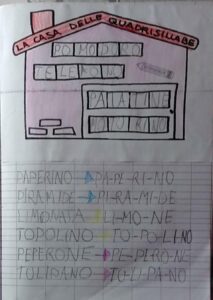 LA CASA DELLE QUADRISILLABE
PO MO DO RO
PA TA TI NE
PAPERINO
PIRAMIDE → PI-RA-MI-DE
LIMONATA → LI-MO-NE
TOPOLINO → TO-PO-LI-NO
PEPERONE → PE-PERO-NE
TOLIPANO → TO-LI-PA-NO